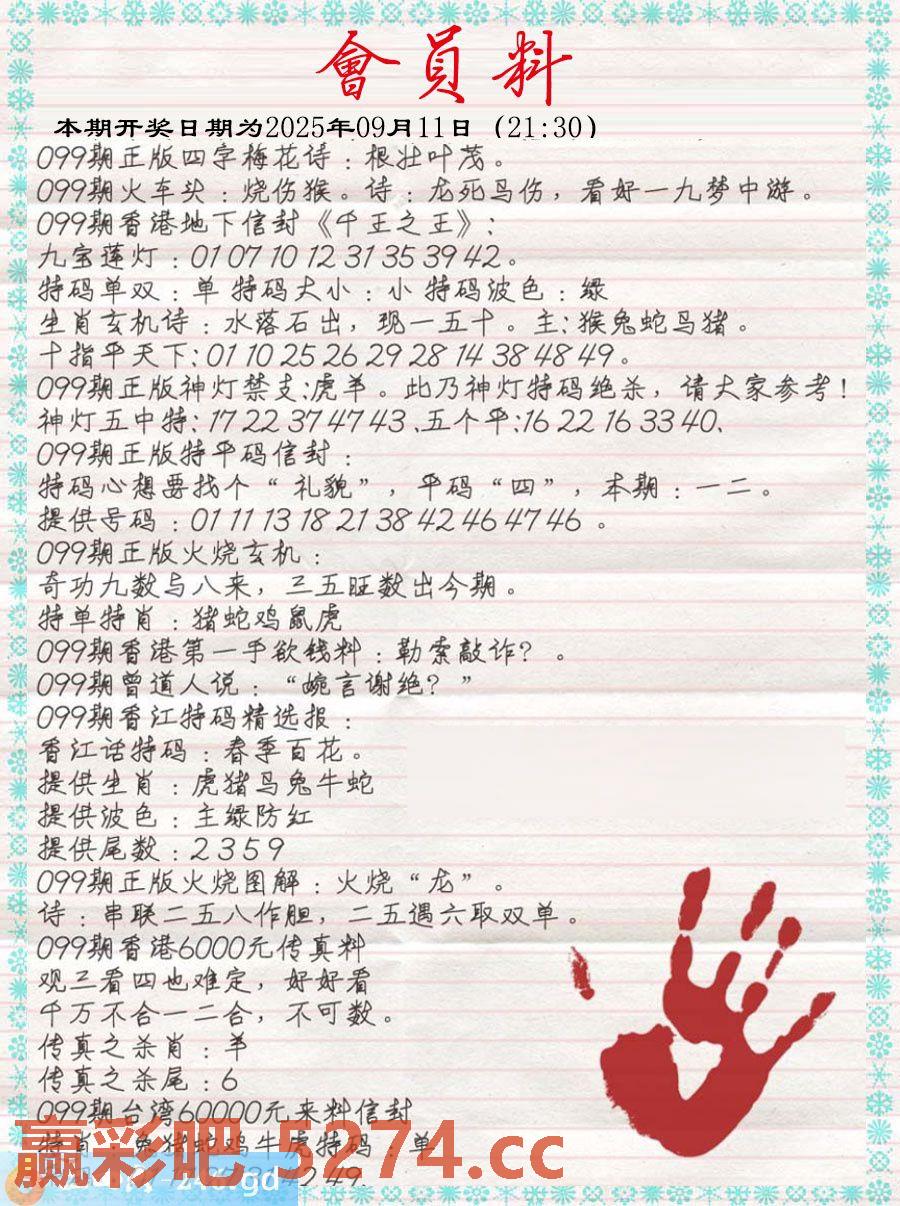 會員料
本期开奖日期为2025年09月11日（21:30）
099期正版四字梅花诗：根壮叶茂。
099期火车头：烧伤猴。诗：龙死鸟伤，看好一九梦中游。
099期香港地下信封《千王之王》：
九宝莲灯：01 07 10 12 31 35 39 42。
特码单双：单 特码大小：小 特码波色：绿
生肖玄机诗：水落石出，现一五十。主：猴兔蛇鸟猪。
十指平天下：01 10 25 26 29 28 14 38 48 49。
099期正版神灯禁支：虎羊。此乃神灯特码绝杀，请大家参考！
神灯五中特：17 22 37 47 43、五个平：16 22 16 33 40、
099期正版特平码信封：
特码心想要找个“礼貌”，平码“四”，本期：一二。
提供号码：01 11 13 18 21 38 42 46 47 46 。
099期正版火烧玄机：
奇功九数与八来，三五旺数出今期。
特单特肖：猪蛇鸡鼠虎
099期香港第一手欲钱料：勒索敲诈？。
099期曾道人说：“婉言谢绝？”
099期香江特码精选报：
香江话特码：春季百花。
提供生肖：虎猪鸟兔牛蛇
提供波色：主绿防红
提供尾数：2 3 5 9
099期正版火烧图解：火烧“龙”。
诗：串联二五八作胆，二五遇六取双单。
099期香港6000元传真料
观三看四也难定，好好看
千万不合一二合，不可数。
传真之杀肖：羊
传真之杀尾：6
099期台湾60000元来料信封
特肖：兔猪蛇鸡牛虎特码：单
赢彩吧.5274.cc